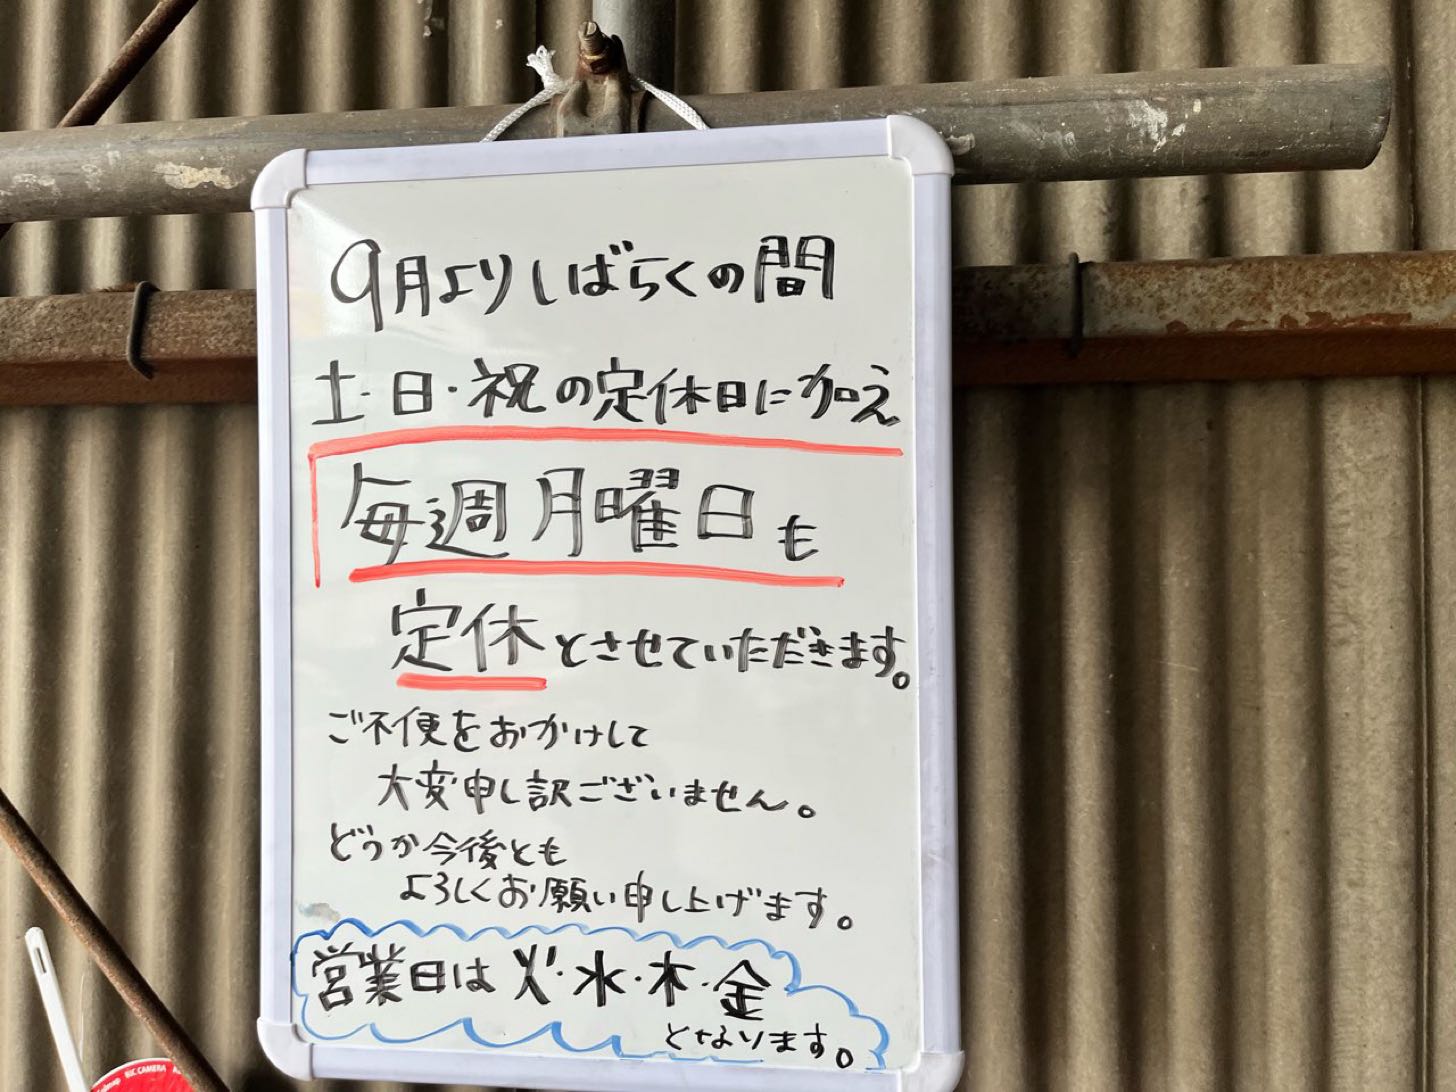 9月よりしばらくの間
土・日・祝の定休日に加え
毎週月曜日も
定休とさせていただきます。
ご不便をおかけして
大変申し訳ございません。
どうか今後とも
よろしくお願い申し上げます。
営業日は火・水・木・金
となります。
BIC CAMERA